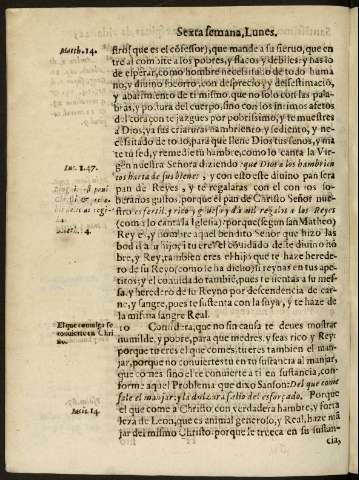 Sexta semana, Lunes.
Matth. 14.
stro (que es el cõfessor), que mande a su sieruo, que en
tre al combite a los pobres, y flacos y debiles: y has lo
de esperar, como hombre necessitado de todo huma
no, y diuino socorro, con desprecio y desestimació,
y abatimiento de ti mismo que no solo con las pala-
bras, y postura del cuerpo, sino con los intimos afetos
del coraçon te juzgues por pobrissimo, y te muestres
a Dios, y a sus criaturas hambriento y sediento, y ne-
cessitado de todo, para que llene Dios tus senos, y ma
te tu sed, y remedie tu hambre, como lo canta la Vir-
Luc. 1.47.
gen nuestra Señora diziendo que Dios a los hambrien
tos harta de sus bienes, y con esto este diuino pan sera
pan de Reyes, y te regalaras con el con los so-
beranos gustos, porque el pan de Christo Señor nue-
stro es fertil, y rico y guiso y da mil regalos a los Reyes
(como lo canta la Iglesia) porque (segun san Matheo)
Rey es, y nombre aquel bendito Señor que hizo las
bodas a su hijo; y tu eres el combidado deste diuino hõ
bre, y Rey, tambien eres el hijo que te haze herede-
ro de su Reyno (como le ha dicho) si reynas en tus ape-
titos; y el combidado tambié, pues te sientas a su me-
sa, y heredero de su Reyno por descendencia de car-
ne, y sangre, pues te sustenta con la suya, y te haze de
la misma sangre Real.
El que comulga se
conuierte en Chri
sto.
10 Considera, que no sin causa te deues mostrar
humilde, y pobre, para que medres, y seas rico y Rey:
porque tu eres el que comes, tu eres tambien el man-
jar, porque no conuiertes tu en tu sustancia al manjar,
que comes sino el te conuierte a ti en sustancia, con-
forme aquel Problema que dixo Sanson: Del que come
sale el manjar: y la dulçura salio del esforçado. Porque
Iudic. 14.
el que come a Christo con verdadera hambre, y forta
leza de Leon, que es animal generoso, y Real, haze mã
jar del mismo Christo: porque le trueca en su sustan-
cia,